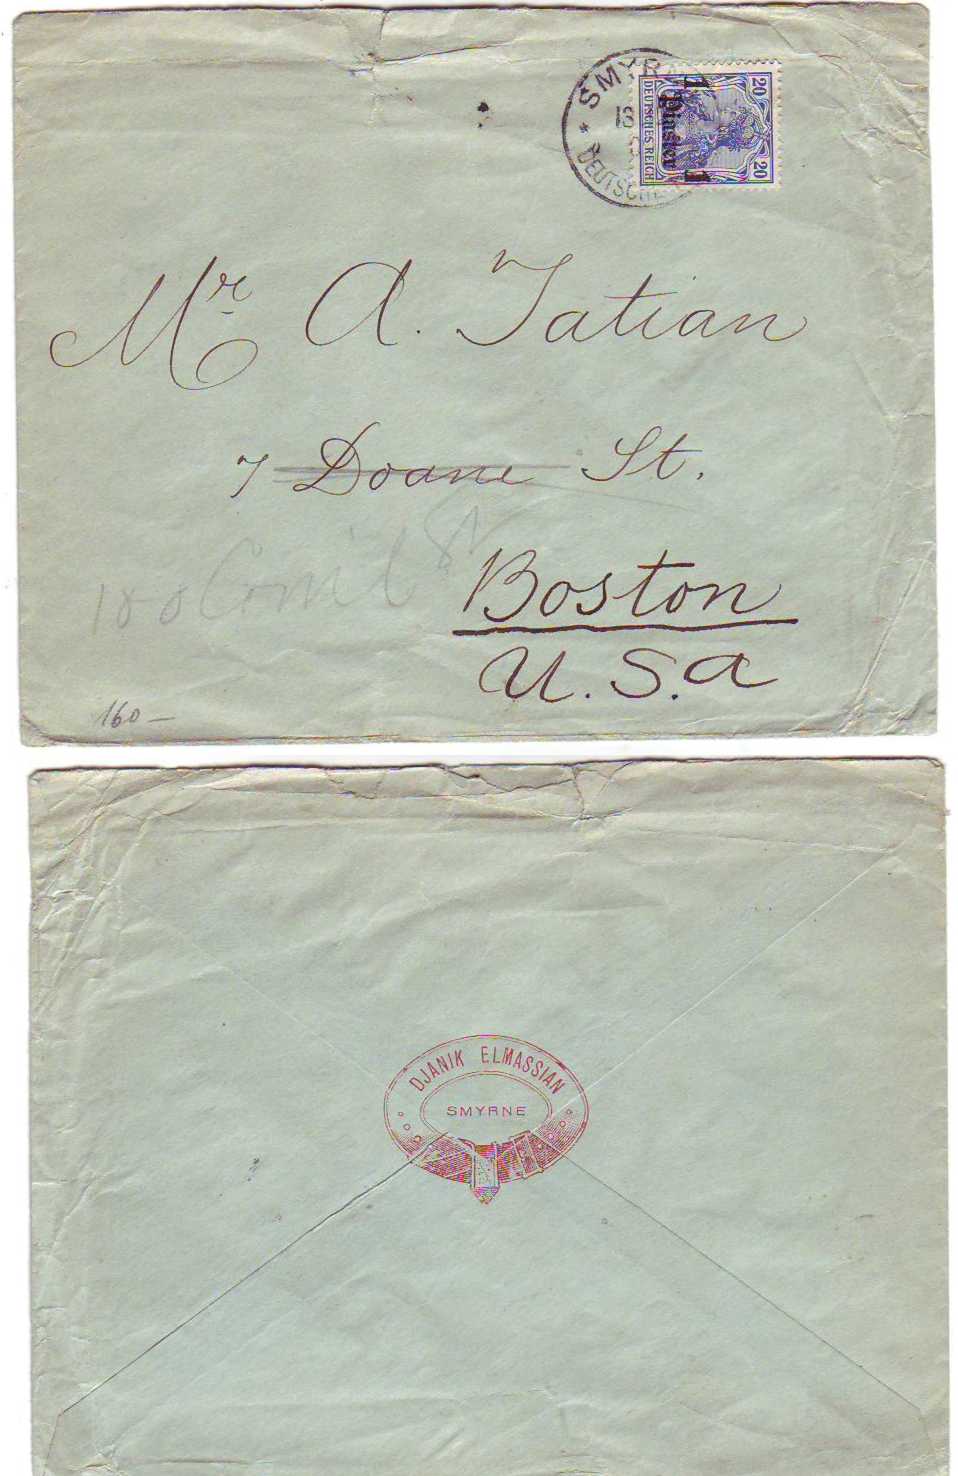 SMYRNA
* DEUTSCHE
20 20
DEUTSCHES REICH
1 Piaster 1
Mr A. Tatian
7 Doane St.
188 Com'l St
Boston
U.S.A
160 —
DJANIK ELMASSIAN
SMYRNE